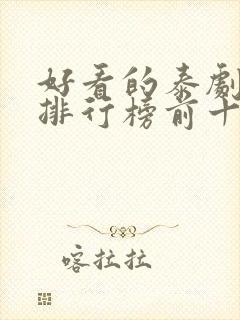 好看的泰劇
排行榜前十
喀拉拉